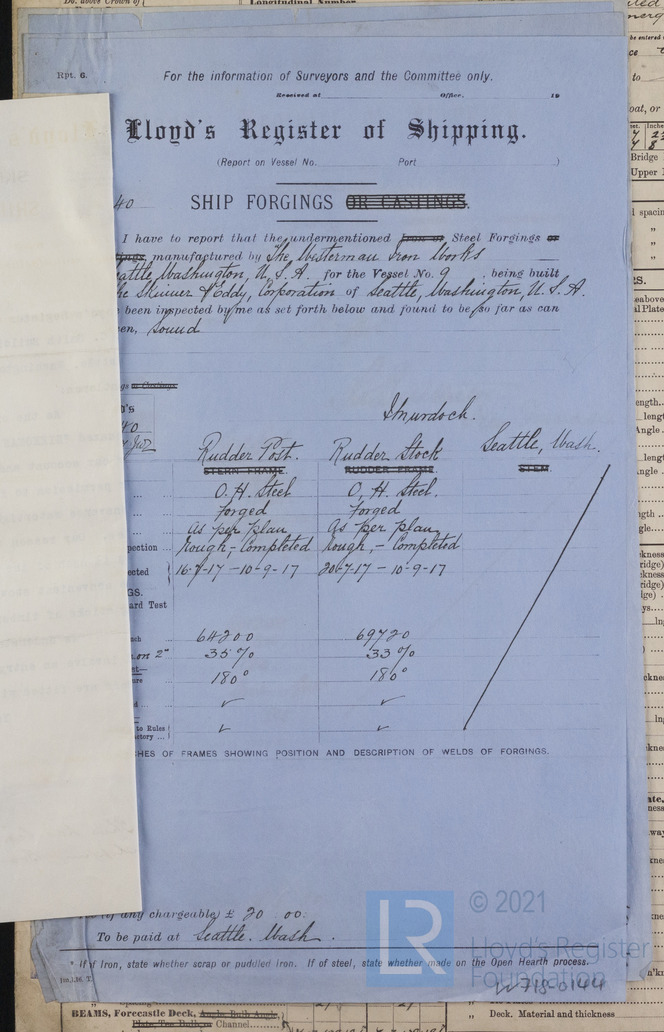 Longitudinal Number
Rpt. 6.
For the information of Surveyors and the Committee only.
Received at Office, 19
Lloyd's Register of Shipping.
(Report on Vessel No. Port )
40
SHIP FORGINGS OR CASTINGS.
I have to report that the undermentioned Iron or Steel Forgings or
manufactured by The Westerman Iron Works
eattle, Washington, U.S.A. for the Vessel No. 9, being built
he Skinner & Eddy, Corporation of Seattle, Washington, U.S.A.
been inspected by me as set forth below and found to be, so far as can
en, Sound
or Castings
's
40
Murdock.
Rudder Post. Rudder Stock Seattle, Wash.
STERN FRAME. RUDDER FRAME STEM.
O.H. Steel O.H. Steel.
Forged Forged
As per plan As per plan
pection Rough,- Completed Rough,- Completed
ected 16-7-17 -10-9-17 20-7-17 - 10-9-17
GS.
ard Test
ch 64200 69720
on 2" 35% 33%
ure 180° 180°
✓ ✓
to Rules ✓ ✓
ctory ...
CHES OF FRAMES SHOWING POSITION AND DESCRIPTION OF WELDS OF FORGINGS.
(if any chargeable) £ 20 00.
To be paid at Seattle. Wash.
* If of Iron, state whether scrap or puddled iron. If of steel, state whether made on the Open Hearth process.
LR
© 2021
Lloyd's Register
Foundation
W718-0144
BEAMS, Forecastle Deck, Angle Bulb Angle,
Channel
Deck. Material and thickness